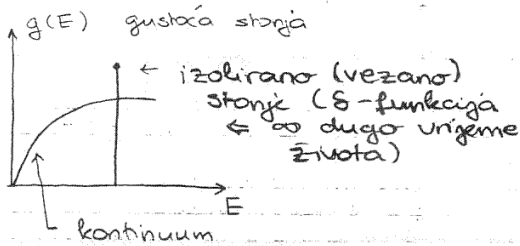 g(E) gustoća stanja
← izolirano (vezano)
stanje (δ-funkcija
⇐ ∞ dugo vrijeme
života)
E
kontinuum